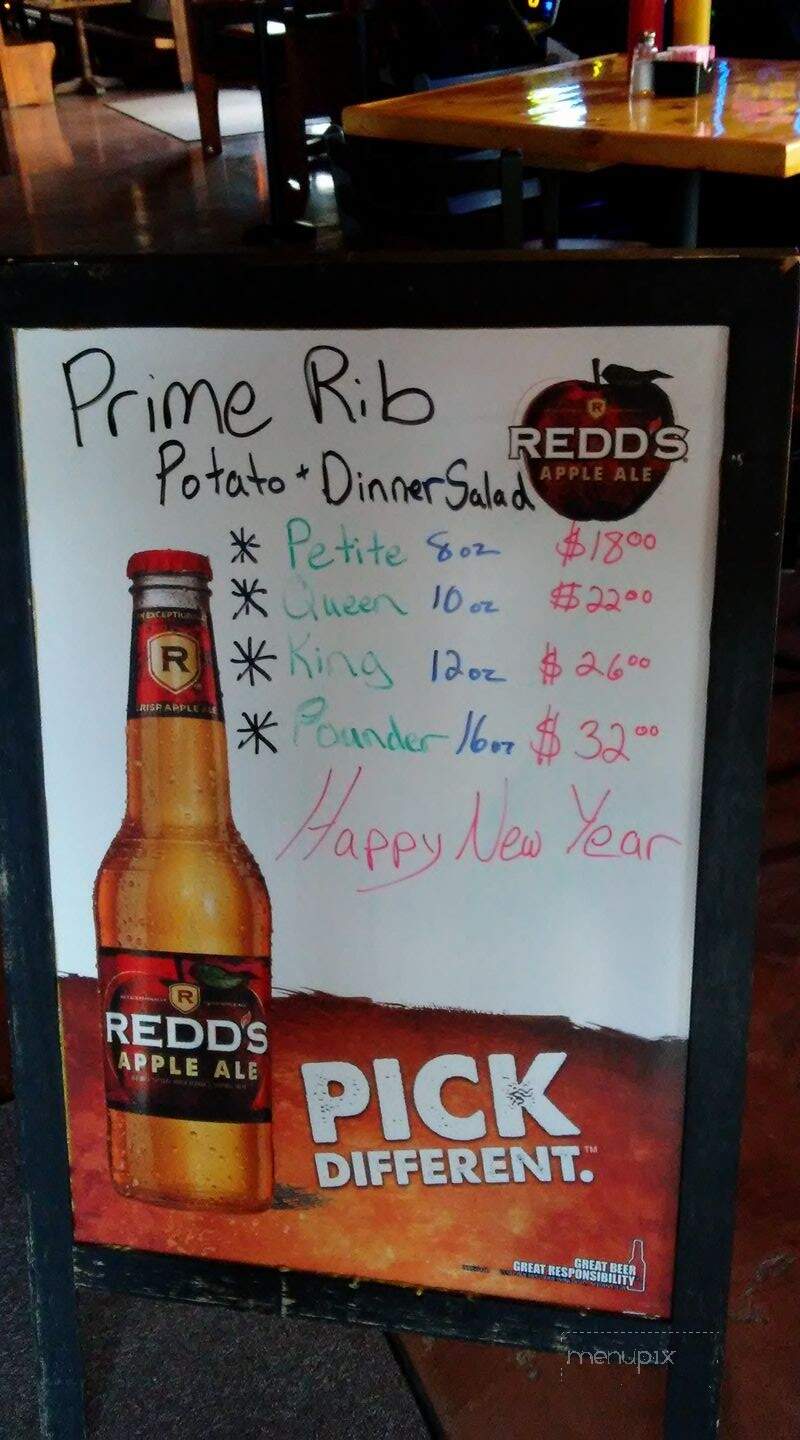 Prime Rib
Potato + Dinner Salad
REDD'S
APPLE ALE
* Petite 8oz $18.00
* Queen 10 oz $22.00
* King 12oz $26.00
* Pounder 16oz $32.00
Happy New Year
R
CRISP APPLE ALE
R
REDD'S
APPLE ALE
PICK
DIFFERENT.™
GREAT BEER
GREAT RESPONSIBILITY
menupix